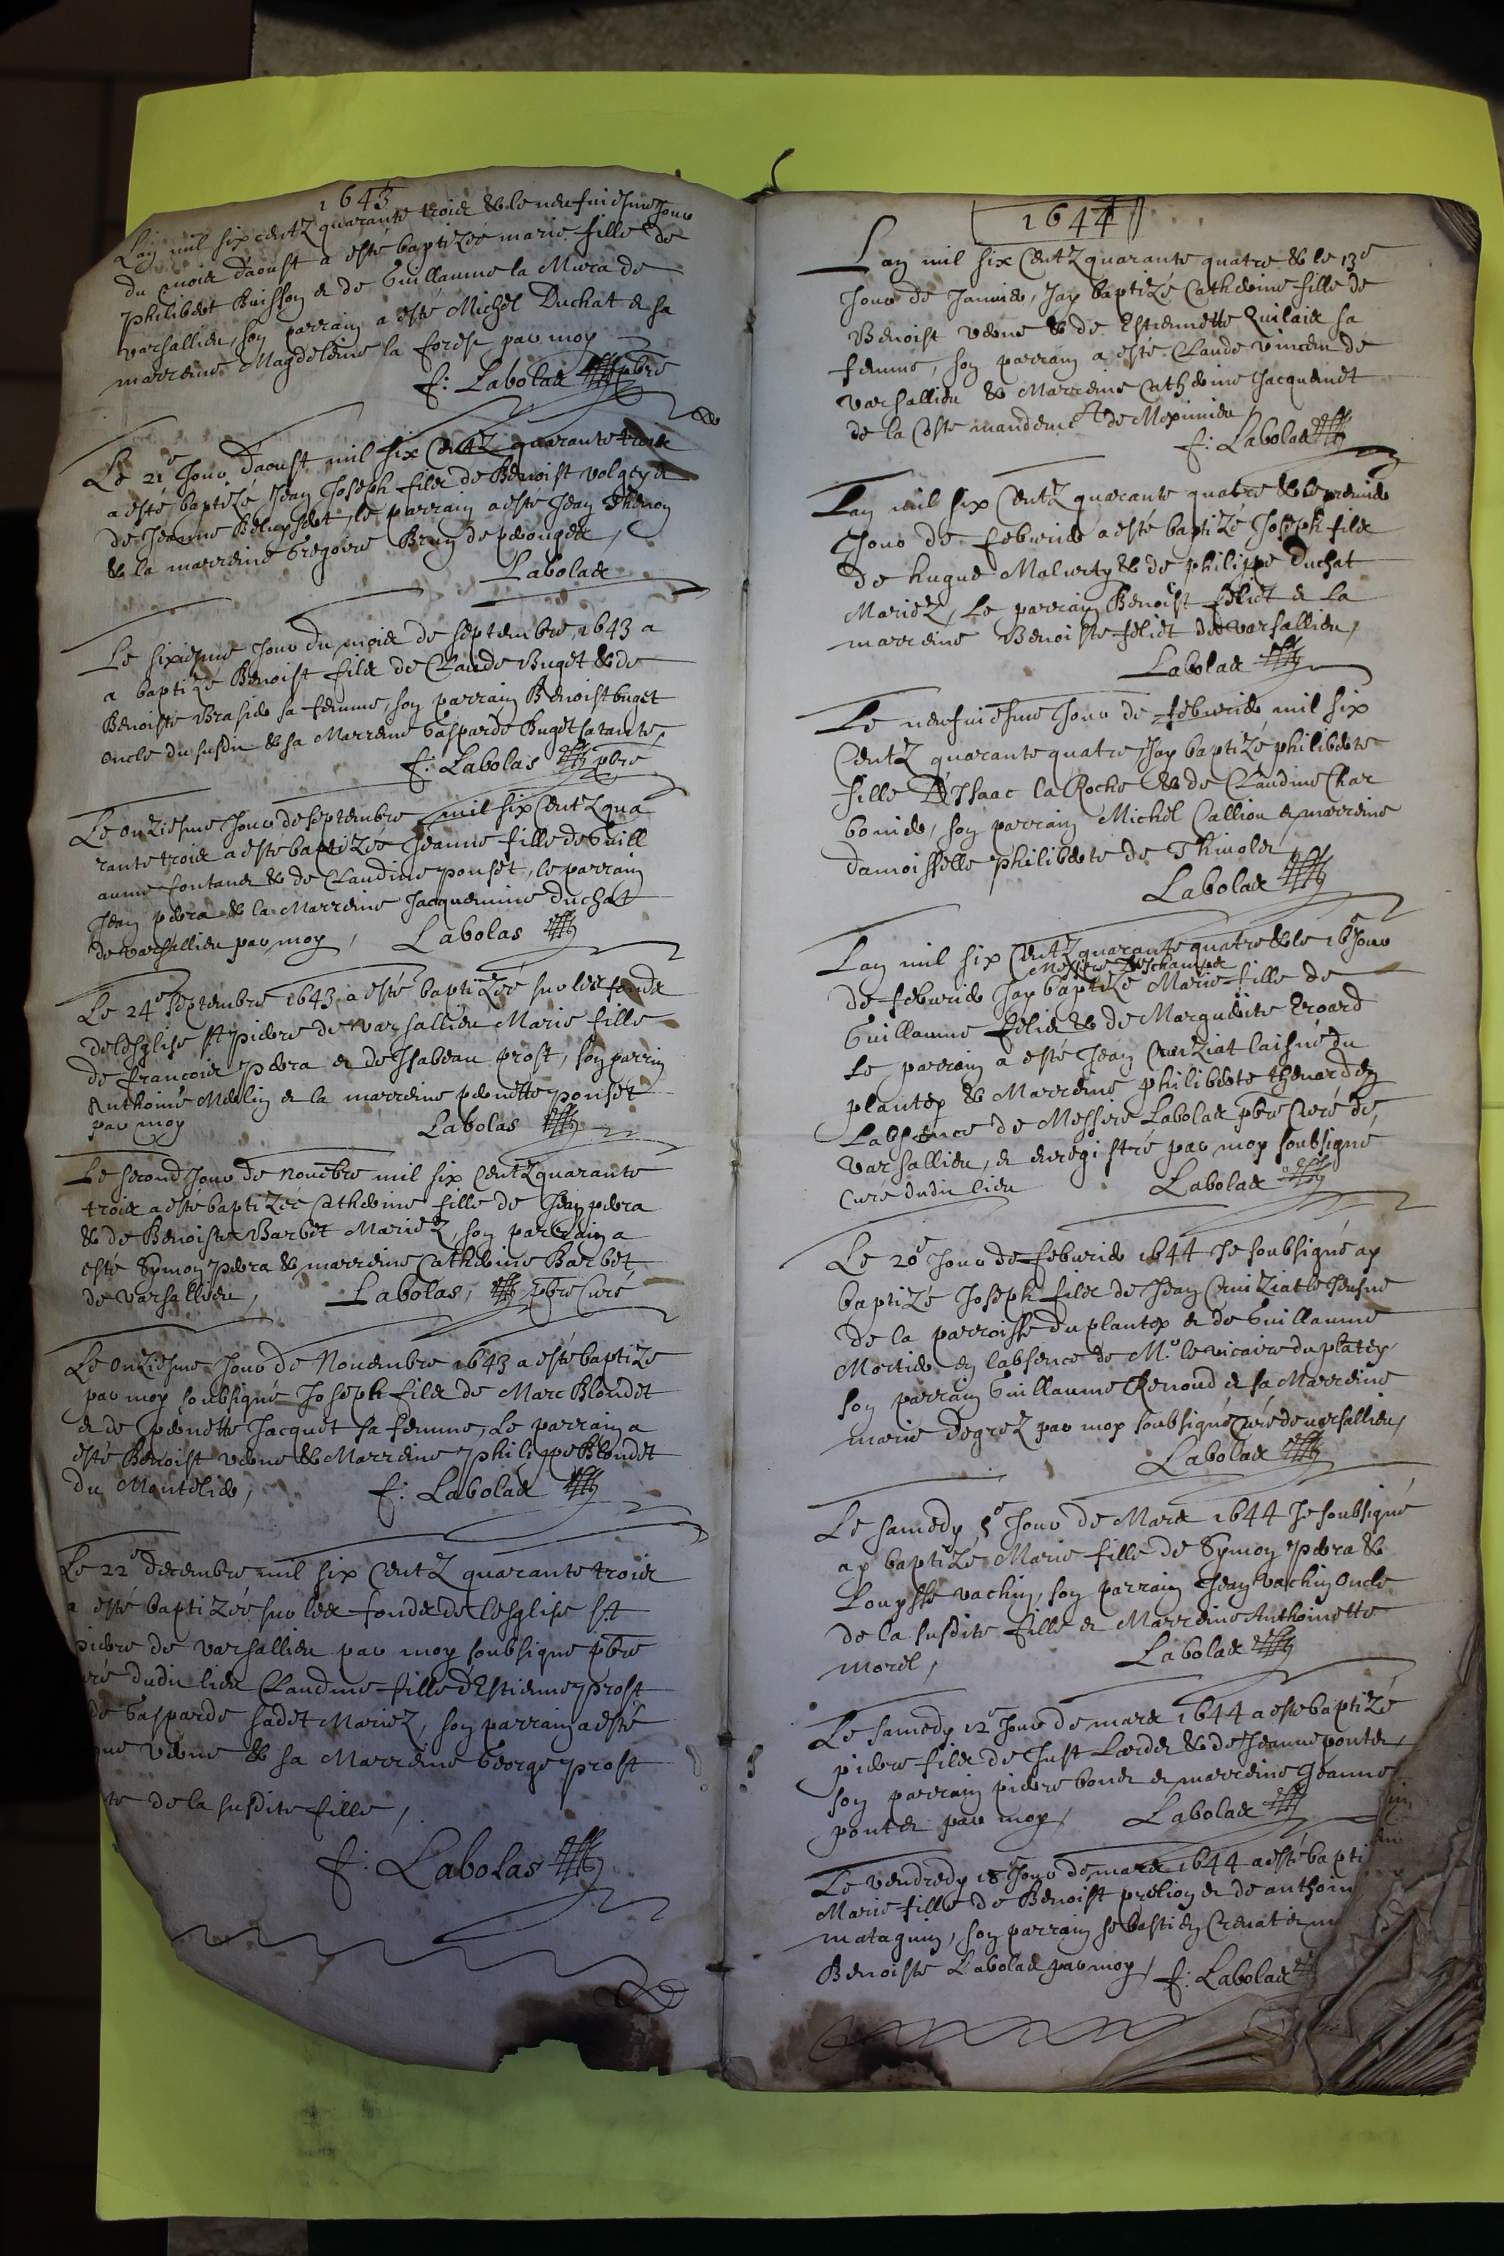 1643
Lan mil six centz quarante trois & le neufuiesme Jour
du mois d'aoust a esté baptizée marie fille de
philibert Buisson et de Guillauma la Mura de
varsallieu, son parrain a esté Michel Duchat et sa
marreine Magdeleine la forest par moy
f: Labolas pbre
Le 21e Jour d'aoust mil six Centz quarante trois
a esté baptizé Jean Joseph filz de Benoist
de Jeanne le parrain a esté Jean Thenon
& la marreine Gregoire Brun de perouges,
Labolas
Le sixiesme Jour du mois de septembre, 1643 a
a baptizé Benoist filz de Claude Buget & de
Benoiste Brasier sa femme, son parrain Benoist buget
oncle du susdit & sa Marreine Gasparde Buget sa tante,
f: Labolas pbre
Le onziesme Jour de septembre mil six Centz qua
rante trois a esté baptizée Jeanne fille de Guill
aume fontanes & de Claudine ponset, le parrain
Jean pera & la Marreine Jacquemine Duchat
de varsallieu par moy, Labolas
Le 24e septembre 1643 a esté baptizée sur les fonds
de lesglise st pierre de varsallieu Marie fille
de francois pera et de Isabeau prost, son parrin
Anthoine Merlin et la marreine pernette ponset
par moy Labolas
Le second Jour de nouebre mil six Centz quarante
trois a esté baptizée Catherine fille de Jean pera
& de Benoiste Barbet Mariez, son parrain a
esté Symon pera & marreine Catherine Barbet
de varsallieu, Labolas, pbre Curé
Le onziesme Jour de Nouembre 1643 a esté baptizé
par moy soubsigné Joseph filz de Marc Blondet
et de pernette Jacquet sa femme, Le parrain a
esté Benoist verne & Marreine philippe Blondet
du Montelier, f: Labolas
Le 22e decembre mil six Centz quarante trois
a esté baptizée sur les fonds de lesglise st
pierre de varsallieu par moy soubsigné pbre
curé dudit lieu Claudine fille d'Estienne prost
de Gasparde sadet Mariez, son parrain a esté
verne & sa Marreine George prost
de la susdite fille,
f: Labolas
1644
Lan mil six Centz quarante quatre & le 13e
Jour de Januier, Jay baptizé Catherine fille de
Benoist verne & de Estiennette Quilais sa
femme, son parrain a esté Claude vincent de
varsallieu & Marreine Catherine Jacquemet
de la Coste mandemt de Meximieu,
f: Labolas
Lan mil six Centz quarante quatre & le premier
Jour de feburier a esté baptizé Joseph filz
de hugue Malurty & de philippe Duchat
Mariez, Le parrain Benoist feliet et La
marreine Benoiste feliet de varsallieu,
Labolas
Le neufuiesme Jour de feburier mil six
Centz quarante quatre Jay baptizé philiberte
fille D'Isaac la Roche & de Claudine Char
bonier, son parrain Michel Callion et marreine
damoisselle philiberte de Thiuoley
Labolas
Lan mil six Centz quarante quatre & le 16e Jour
Messire Deschamps
de feburier Jay baptizé Marie fille de
Guillaume felix & de Marguerite Eroard
Le parrain a esté Jean Cruiziat laisné du
plantey & Marreine philiberte thenard en
Labsence de Messire Labolas pbre Curé de
varsallieu, et enregistré par moy soubsigné
Curé dudit lieu Labolas
Le 20e Jour de feburier 1644 Je soubsigné ay
baptizé Joseph filz de Jean Cruiziat le Jeusne
de la parroisse du plantey et de Guillaume
Mortier en labsence de Mr le vicaire du platey
son parrain Guillaume Renoud et sa Marreine
marie degrez par moy soubsigné Curé de varsallieu,
Labolas
Le samedy 5e Jour de Mars 1644 Je soubsigné
ay baptizé Marie fille de Symon pera &
Louysse vachin, son parrain Jean vachin oncle
de la susdite fille et Marreine Anthoinette
morel, Labolas
Le samedy 12e Jour de mars 1644 a esté baptizé
pierre filz de Just Lardet & de Jeanne pontet,
son parrain pierre bonet et marreine Jeanne
pontet par moy, Labolas
Le vendredy 18e Jour de mars 1644 a esté bapti
Marie fille de Benoist prelion et de anthoin
mataguin, son parrain sebastien Crenat et m
Benoiste Labolas par moy, f: Labolas